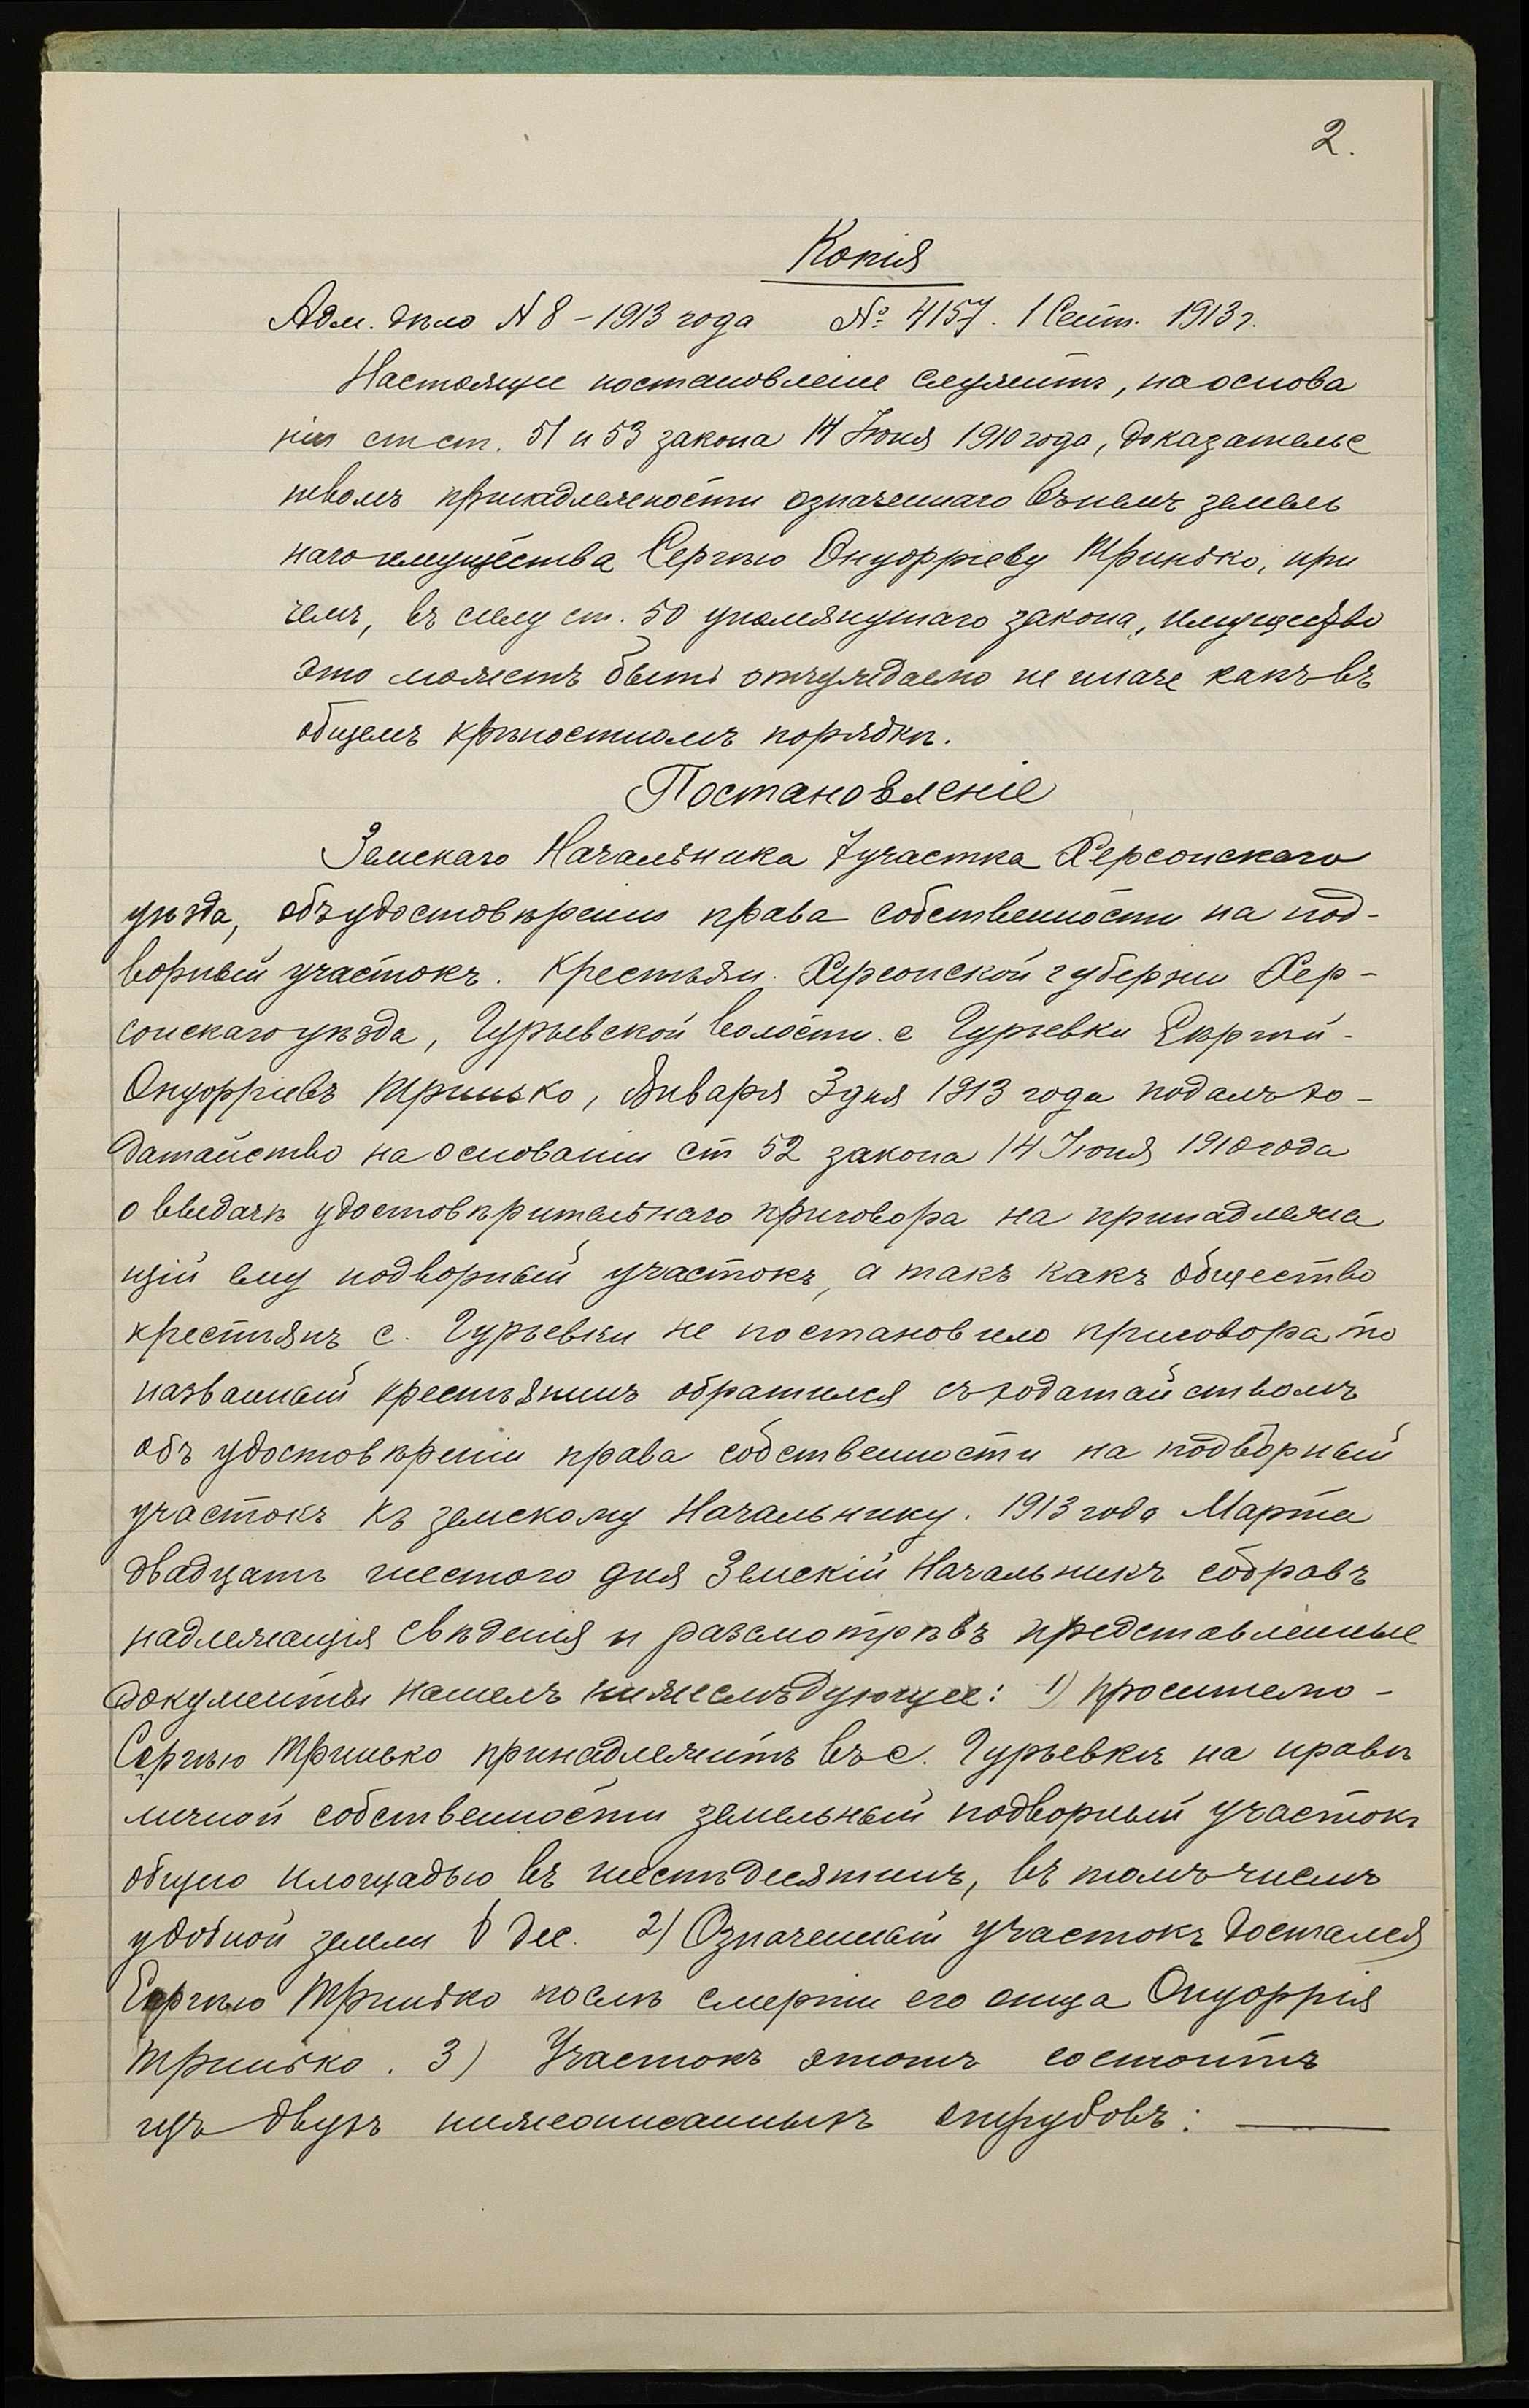 2.
Копія
Адм. дѣло N 8 – 1913 года № 4157. 1 Сент. 1913 г.
Настоящее постановленіе служитъ, на основа
ніи ст ст. 51 и 53 закона 14 Іюня 1910 года, доказательс
твомъ принадлежности означеннаго въ немъ земель
наго имущества Сергѣю Онуфріеву Тринько, при
чемъ, въ силу ст. 50 упомянутаго закона, имущество
это можетъ быть отчуждаемо не иначе какъ въ
общемъ крѣпостномъ порядкѣ.
Постановленіе
Земскаго Начальника 7 участка Херсонскаго
уѣзда, объ удостовѣреніи права собственности на под-
ворный участокъ. Крестьян. Херсонской губерніи Хер-
сонскаго уѣзда, Гурьевской волости с Гурьевки Сергѣй -
Онуфріевъ Тринько, Января 3 дня 1913 года подалъ хо-
датайство на основаніи ст 52 закона 14 Іюня 1910 года
о выдачѣ удостовѣрительнаго приговора на принадлежа
щій ему подворный участокъ, а такъ какъ общество
крестьянъ с. Гурьевки не постановило приговора то
названный крестьянинъ обратился съ ходатайствомъ
объ удостовѣреніи права собственности на подворный
участокъ къ земскому Начальнику. 1913 года Марта
двадцать шестого дня Земскій Начальникъ собравъ
надлежащія свѣденія и разсмотрѣвъ представленные
документы нашелъ нижеслѣдующее: 1) просителю -
Сергѣю Тринько принадлежитъ въ с. Гурьевкѣ на правѣ
личной собственности земельный подворный участокъ
общею площадью въ шесть десятинъ, въ томъ числѣ
удобной земли 6 дес. 2) Означенный участокъ достался
Сергѣю Тринько послѣ смерти его отца Онуфрія
Тринько. 3) Участокъ этотъ состоитъ
изъ двухъ нижеописанныхъ отрубовъ: —